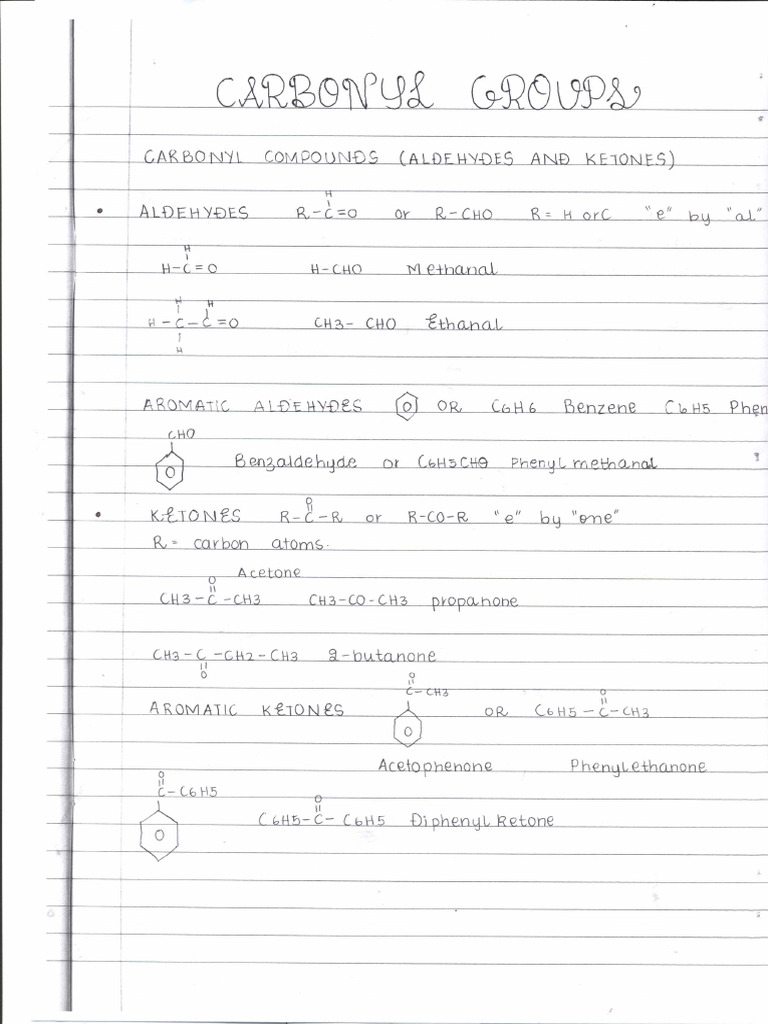 CARBONYL GROUPS
CARBONYL COMPOUNDS (ALDEHYDES AND KETONES)
H
• ALDEHYDES R-C=O or R-CHO R = H or C "e" by "al"
H
H-C=O H-CHO Methanal
H H
H-C-C=O CH3- CHO Ethanal
H
AROMATIC ALDEHYDES O OR C6H6 Benzene C6H5 Phen
CHO
O Benzaldehyde or C6H5CHO Phenyl methanal
O
• KETONES R-C-R or R-CO-R "e" by "one"
R = carbon atoms.
Acetone
O
CH3-C-CH3 CH3-CO-CH3 propanone
CH3-C-CH2-CH3 2-butanone
O
O
C-CH3
O
AROMATIC KETONES O OR C6H5-C-CH3
Acetophenone Phenylethanone
O
C-C6H5
O
O C6H5-C-C6H5 Diphenyl ketone